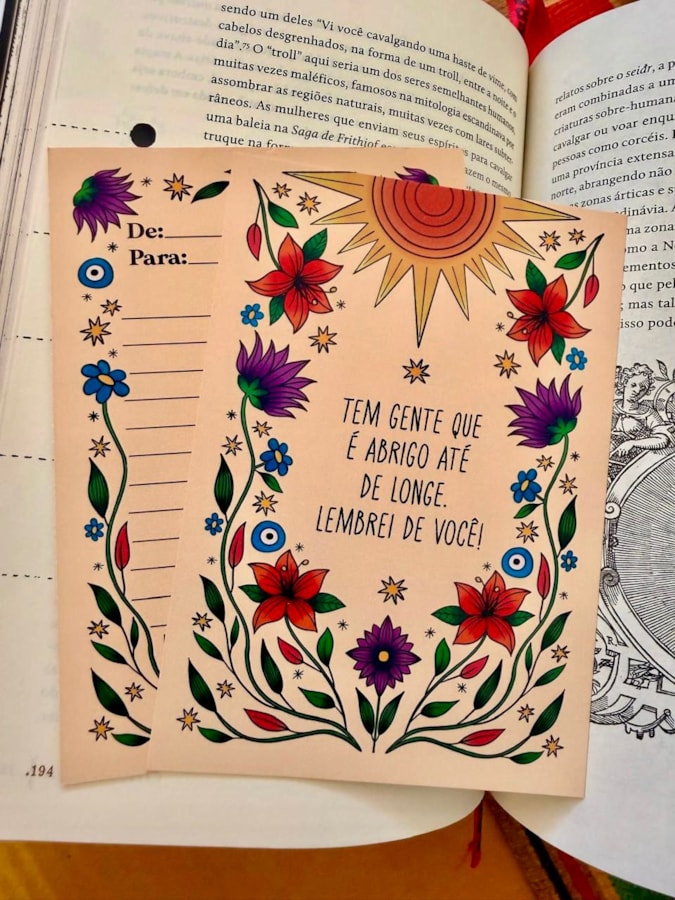 sendo um deles “Vi você cavalgando uma haste de vime, com
cabelos desgrenhados, na forma de um troll, entre a noite e o
dia”.⁷⁵ O “troll” aqui seria um dos seres semelhantes humanos,
muitas vezes maléficos, famosos na mitologia escandinava por
assombrar as regiões naturais, muitas vezes com lares subter-
râneos. As mulheres que enviam seus espíritos para cavalgar
uma baleia na Saga de Frithiof
azem o mesmo
truque na
.194
relatos sobre o seiðr, a p
eram combinadas a um
criaturas sobre-humana
cavalgar ou voar enqu
pessoas como corcéis. E
uma província extensa
norte, abrangendo não
zonas árticas e su
dinávia. A
uma zona
omo a No
ementos
o que pel
; mas tal
isso pod
De:
Para:
TEM GENTE QUE
É ABRIGO ATÉ
DE LONGE.
LEMBREI DE VOCÊ!